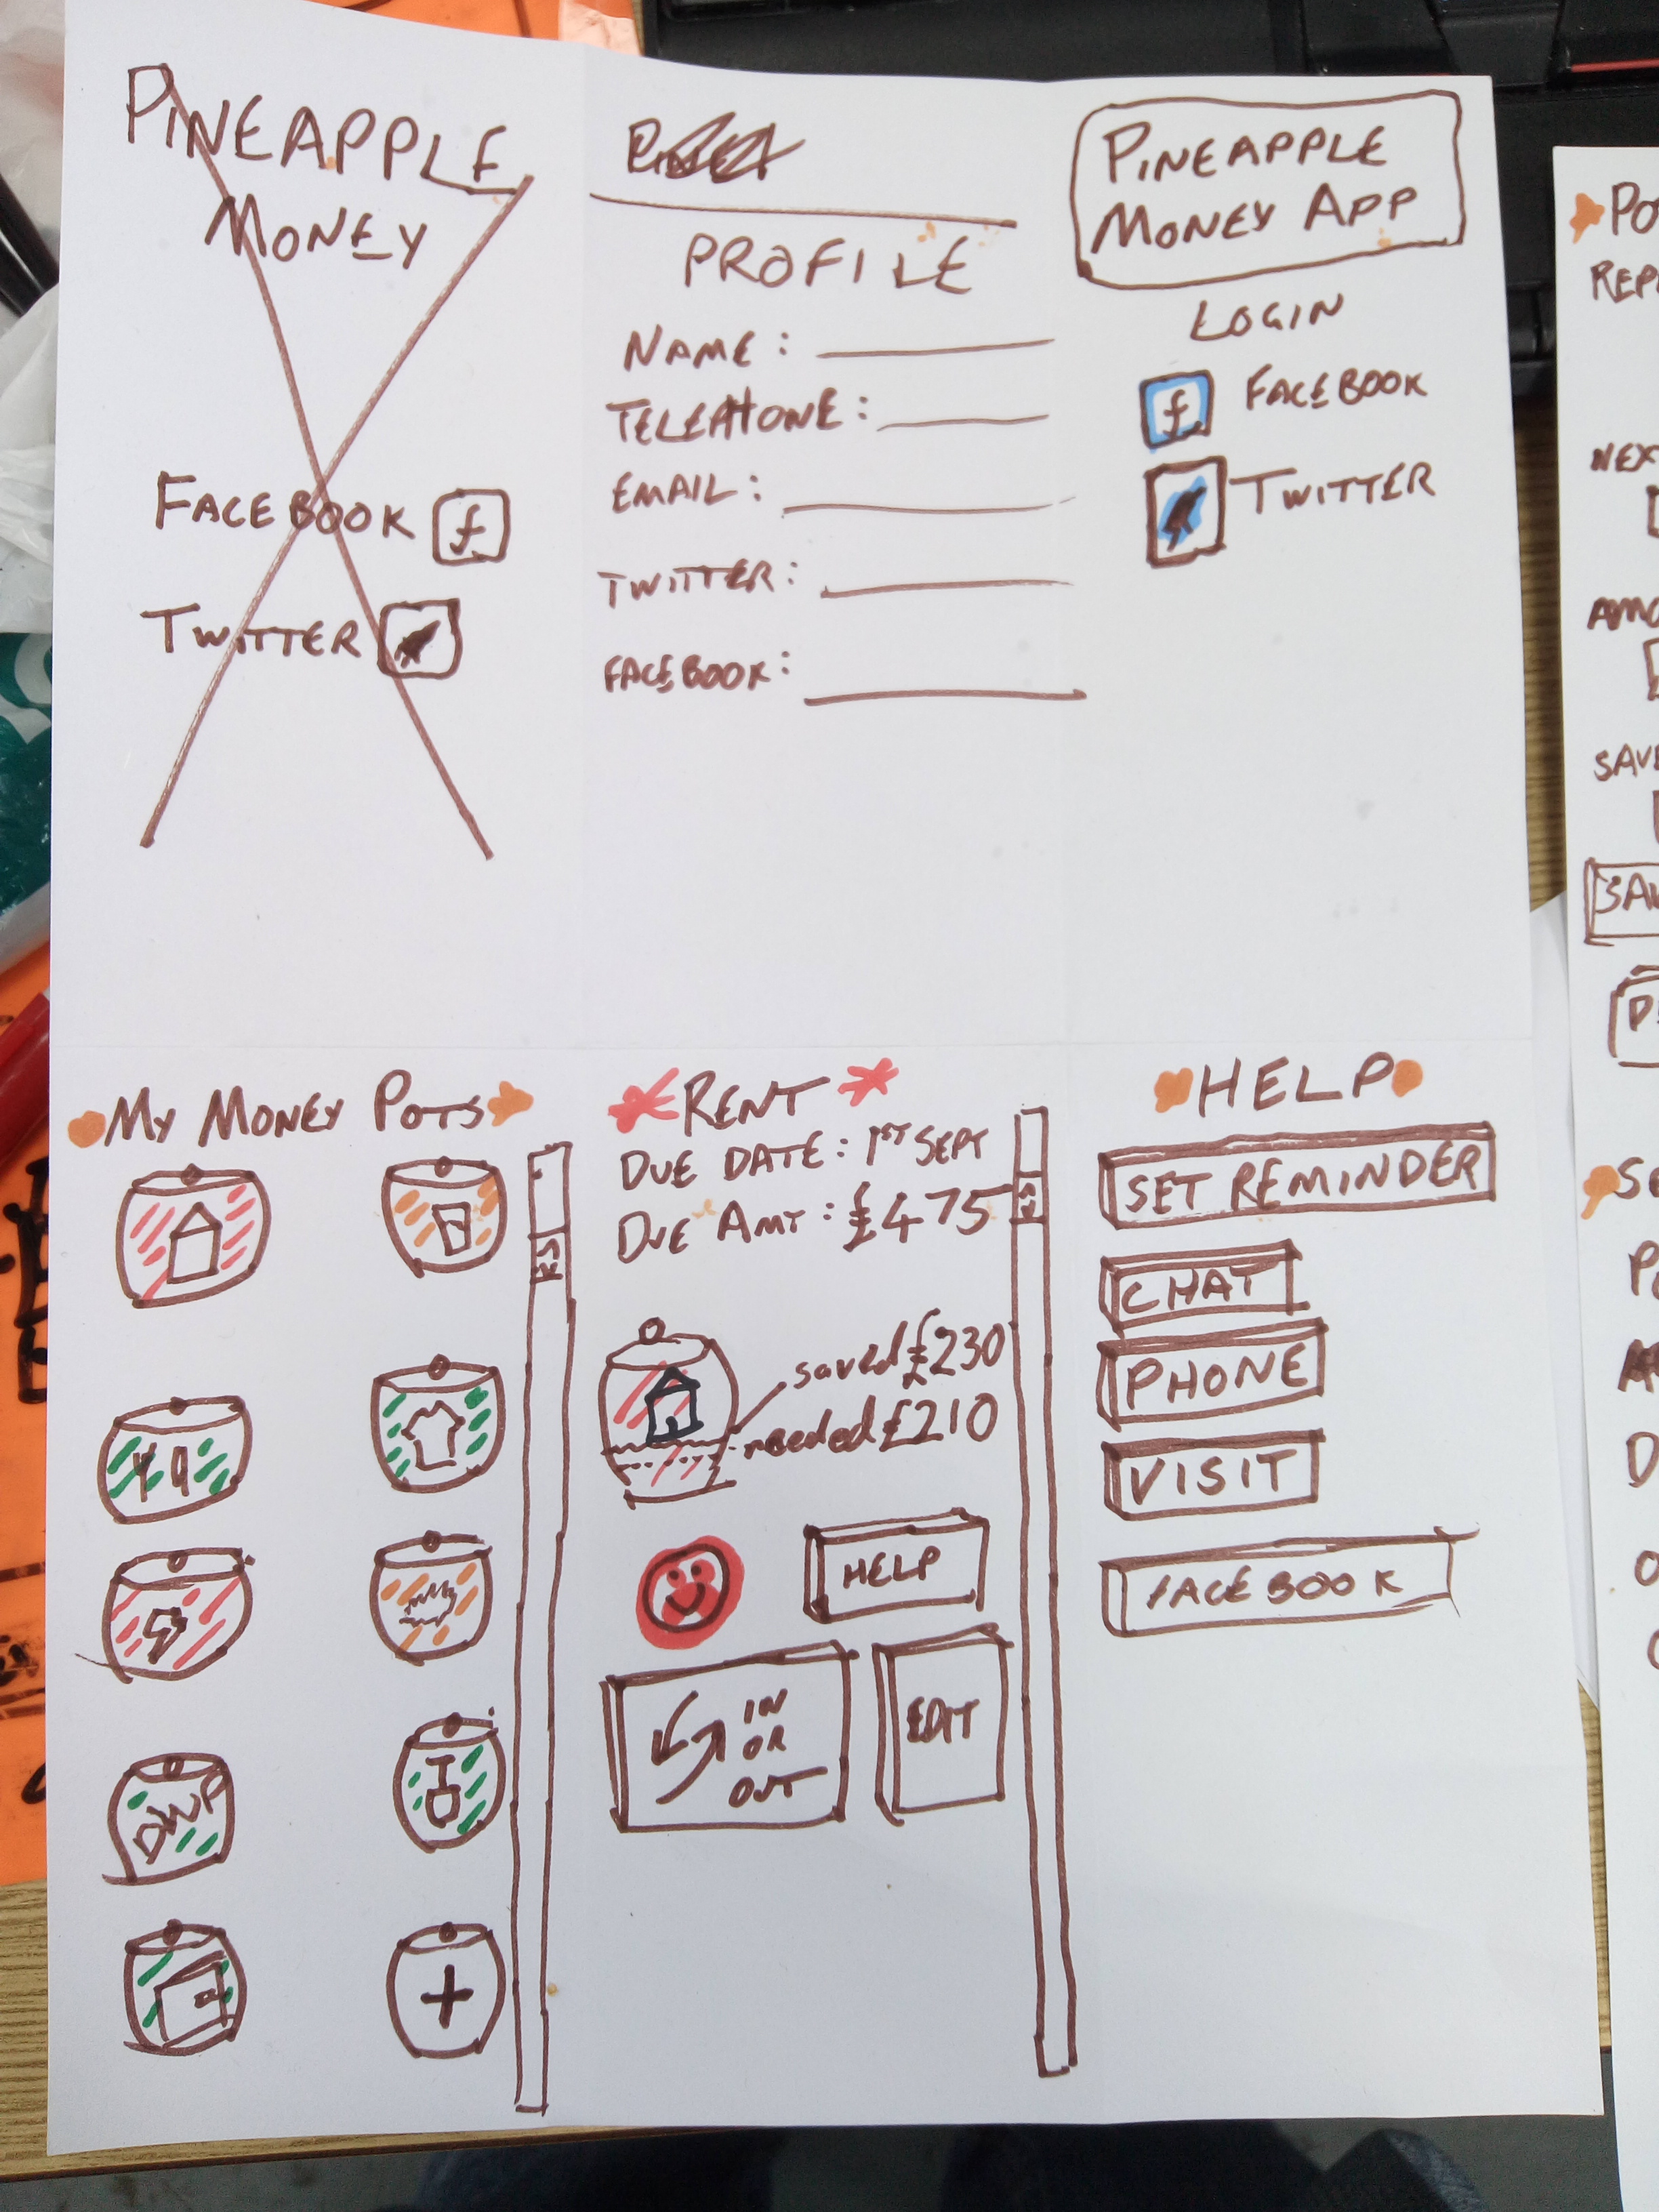 PINEAPPLE
MONEY
FACEBOOK f
TWITTER
PROFILE
NAME:
TELEPHONE:
EMAIL:
TWITTER:
FACEBOOK:
PINEAPPLE
MONEY APP
LOGIN
f FACEBOOK
TWITTER
MY MONEY POTS
DWP
+
RENT
DUE DATE: 1ST SEPT
DUE AMT: £475
saved £230
needed £210
HELP
IN
OR
OUT
EDIT
HELP
SET REMINDER
CHAT
PHONE
VISIT
FACEBOOK